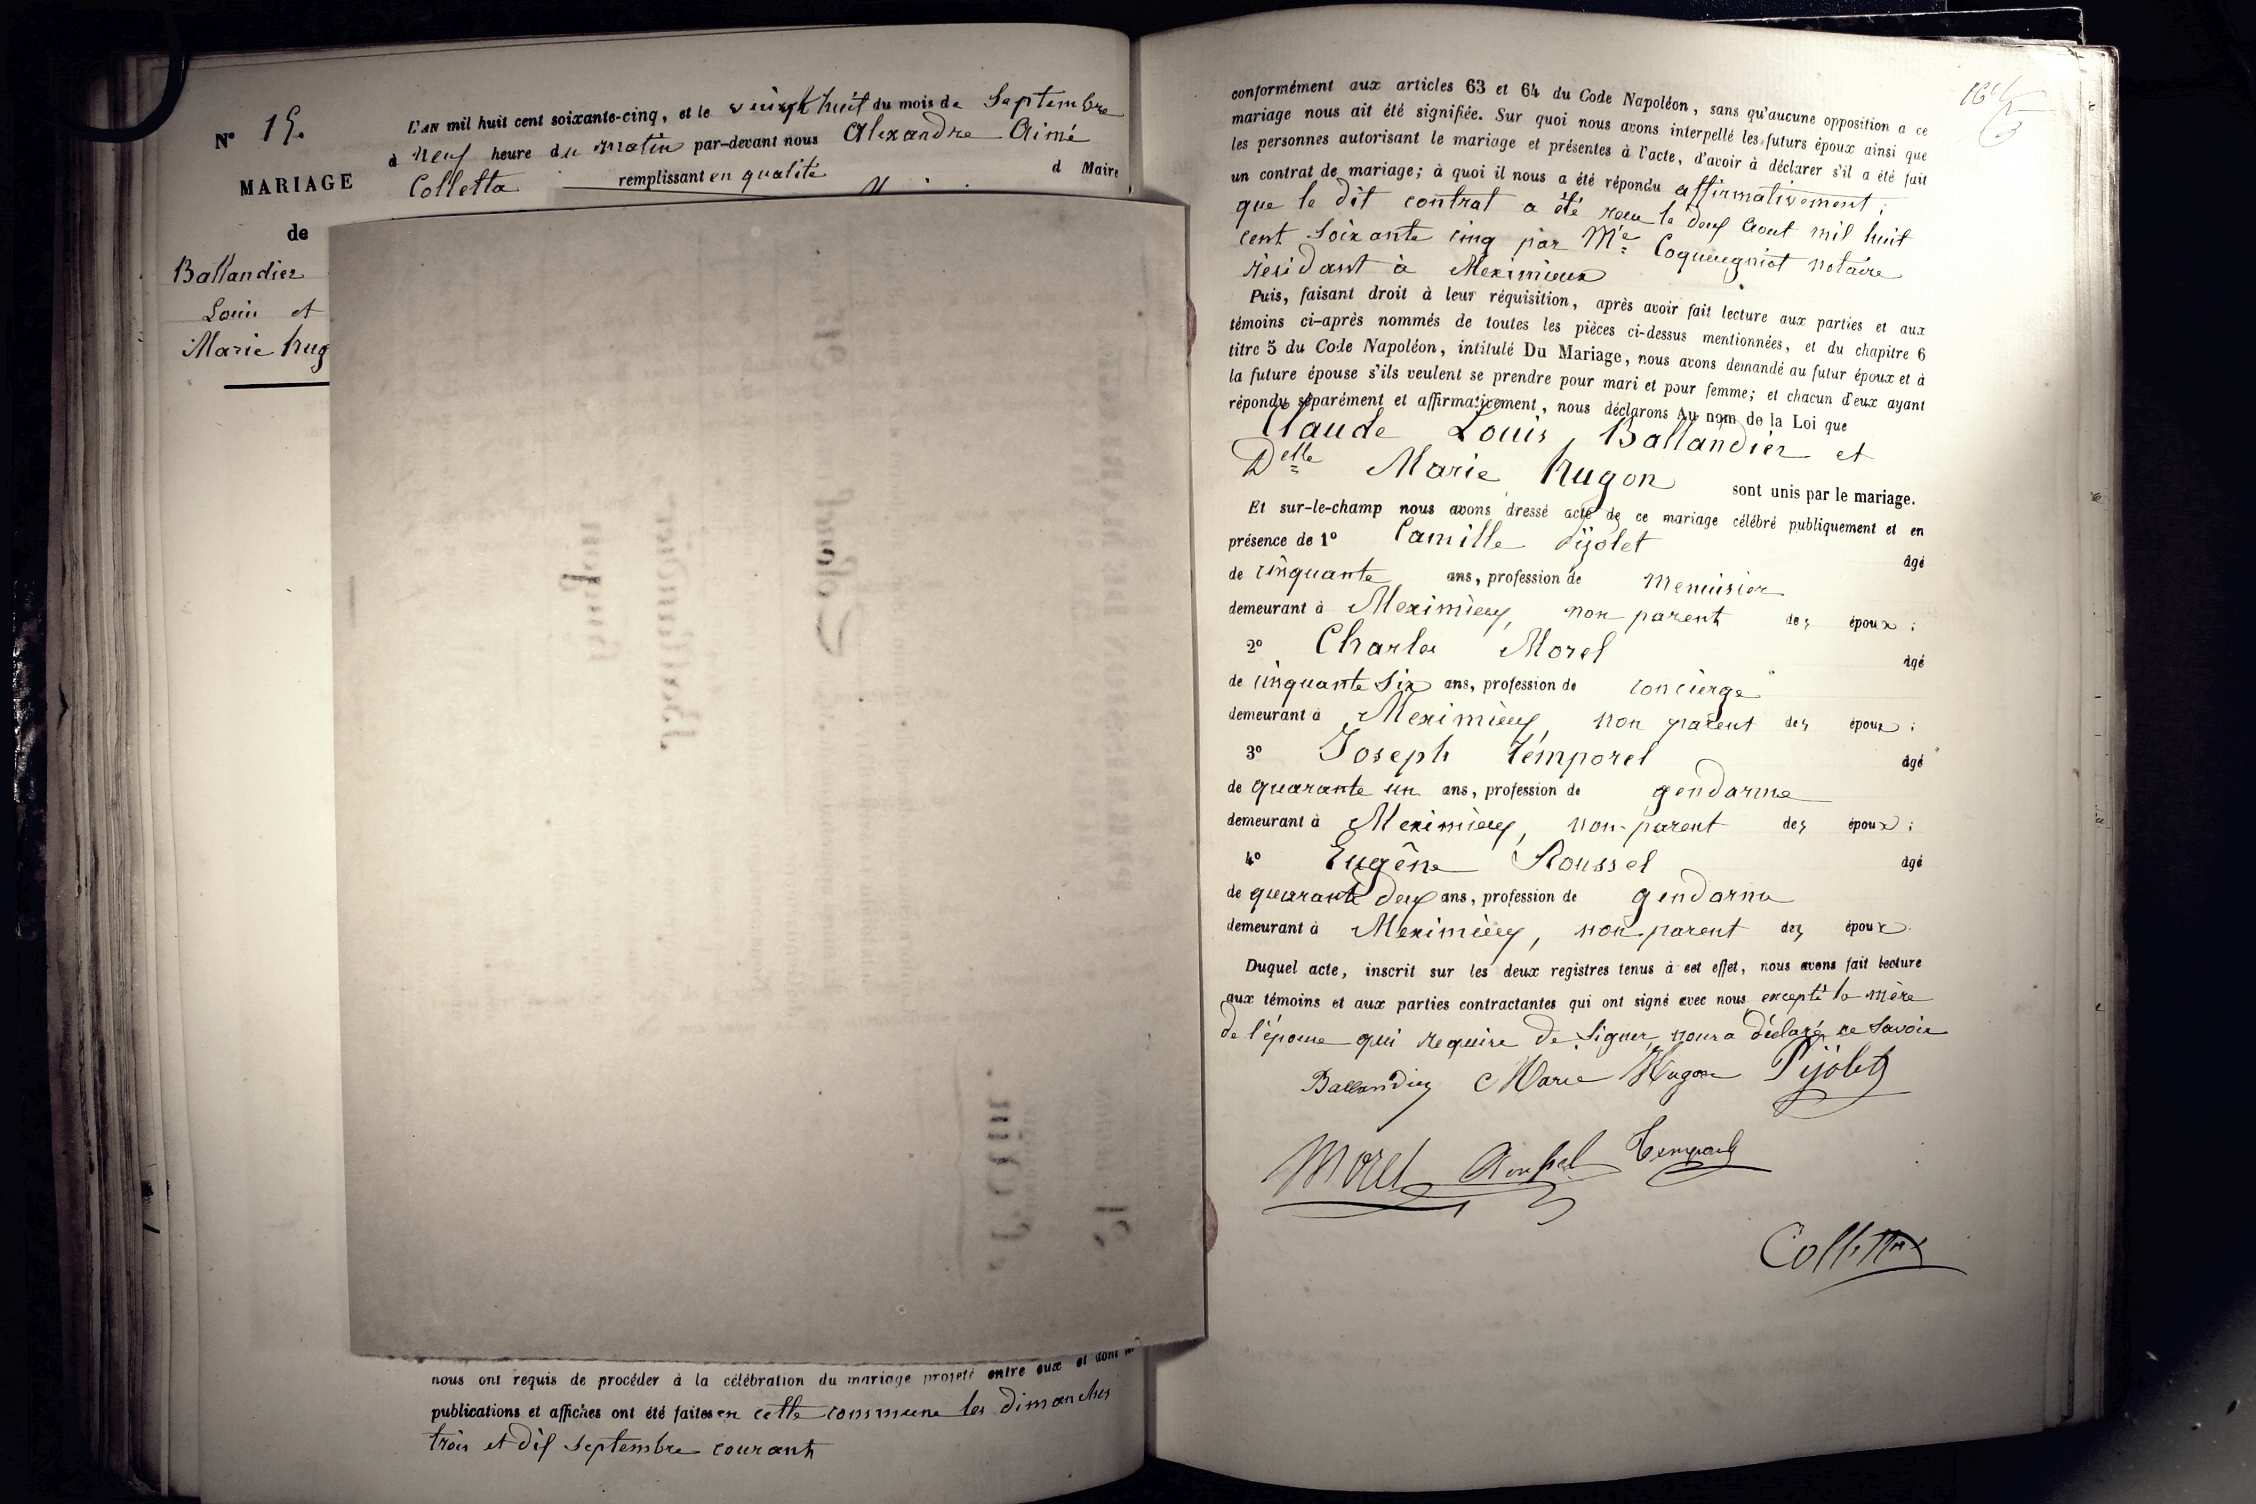 N° 15.
MARIAGE
de
Ballandier
Louis et
Marie hug
L'an mil huit cent soixante-cinq, et le vingt huit du mois de Septembre
à neuf heure du matin par-devant nous Alexandre Aimé
Colletta remplissant en qualité d Maire
nous ont requis de procéder à la célébration du mariage projeté entre eux et dont
publications et affiches ont été faites en cette commune les dimanches
trois et dix septembre courant
conformément aux articles 63 et 64 du Code Napoléon, sans qu'aucune opposition a ce
mariage nous ait été signifiée. Sur quoi nous avons interpellé les futurs époux ainsi que
les personnes autorisant le mariage et présentes à l'acte, d'avoir à déclarer s'il a été fait
un contrat de mariage; à quoi il nous a été répondu affirmativement,
que le dit contrat a été recu le deux aout mil huit
cent soixante cinq par Me Coqueugniot notaire
résidant à Meximieux
Puis, faisant droit à leur réquisition, après avoir fait lecture aux parties et aux
témoins ci-après nommés de toutes les pièces ci-dessus mentionnées, et du chapitre 6
titre 5 du Code Napoléon, intitulé Du Mariage, nous avons demandé au futur époux et à
la future épouse s'ils veulent se prendre pour mari et pour femme; et chacun d'eux ayant
répondu séparément et affirmativement, nous déclarons Au nom de la Loi que
Claude Louis Ballandier et
Delle Marie hugon sont unis par le mariage.
Et sur-le-champ nous avons dressé acte de ce mariage célébré publiquement et en
présence de 1° Camille Pijolet âgé
de cinquante ans, profession de Menuisier
demeurant à Meximieux, non parent des époux ;
2° Charles Morel âgé
de cinquante six ans, profession de concierge
demeurant à Meximieux, non parent des époux ;
3° Joseph Temporel âgé
de quarante un ans, profession de gendarme
demeurant à Meximieux, non parent des époux ;
4° Eugêne Roussel âgé
de quarante deux ans, profession de gendarme
demeurant à Meximieux, non parent des époux
Duquel acte, inscrit sur les deux registres tenus à cet effet, nous avons fait lecture
aux témoins et aux parties contractantes qui ont signé avec nous excepté la mère
de l'épouse qui requise de signer nous a déclaré ne savoir
Ballandier Marie Hugon Pijolet
Morel Roussel Temporel
Colletta